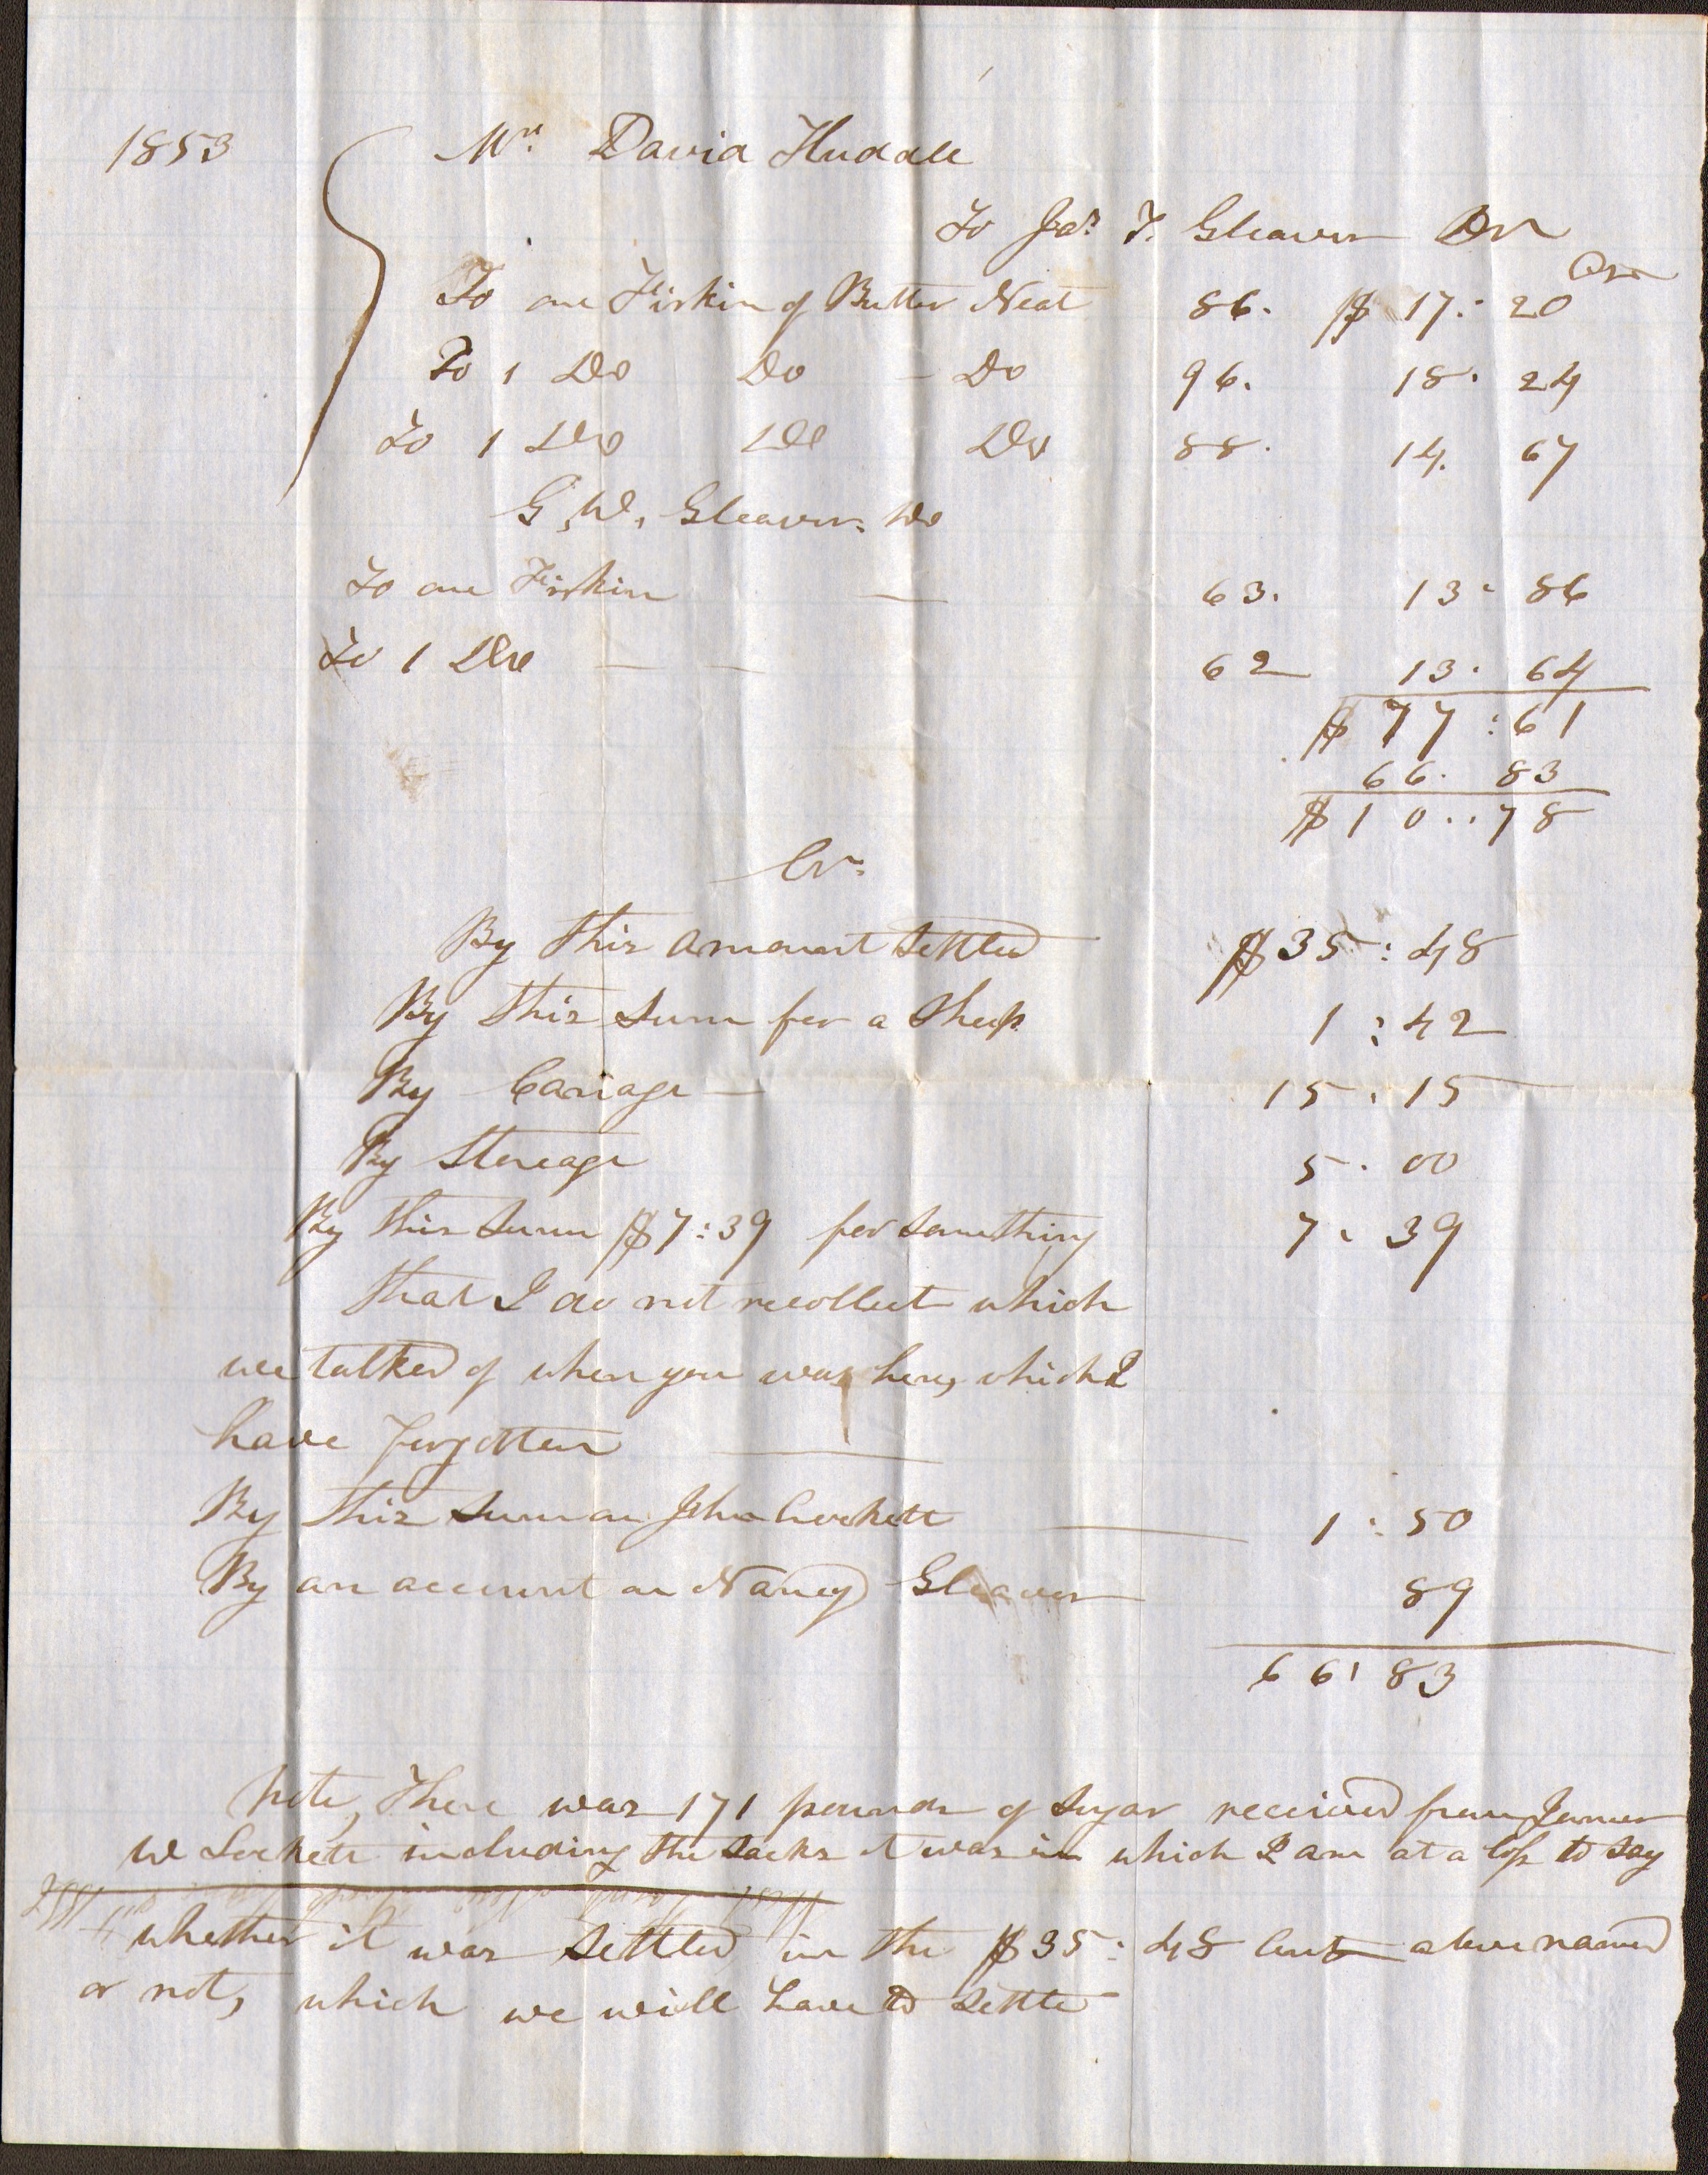 1853 Mr. David Huddle
To Jas. T. Gleaver Dr
Cts
To one Firkin of Butter Neat 86. $ 17: 20
To 1 Do Do - Do 96. 18. 24
To 1 Do Do Do 88. 14. 67
G. W. Gleaver. Do
To one Firkin — 63. 13. 86
To 1 Do — — 62 13. 64
$ 77:61
66. 83
$ 10..78
Cr.
By this amount settled $35:48
By this Sum for a Sheep 1:42
By Cariage — 15.15
By Storeage 5.00
By this Sum $7:39 for Something 7.39
that I do not recollect which
we talked of when you was here, which I
have forgotten —
By this Sum on John Crockett — 1:50
By an account on Nancy Gleaver 89
66.83
Note, There was 171 pounds of Sugar received from James
W Lockett including the Sacks it was in which I am at a loss to say
whether it was settled in the $35:48 Cents above named
or not, which we will have to settle